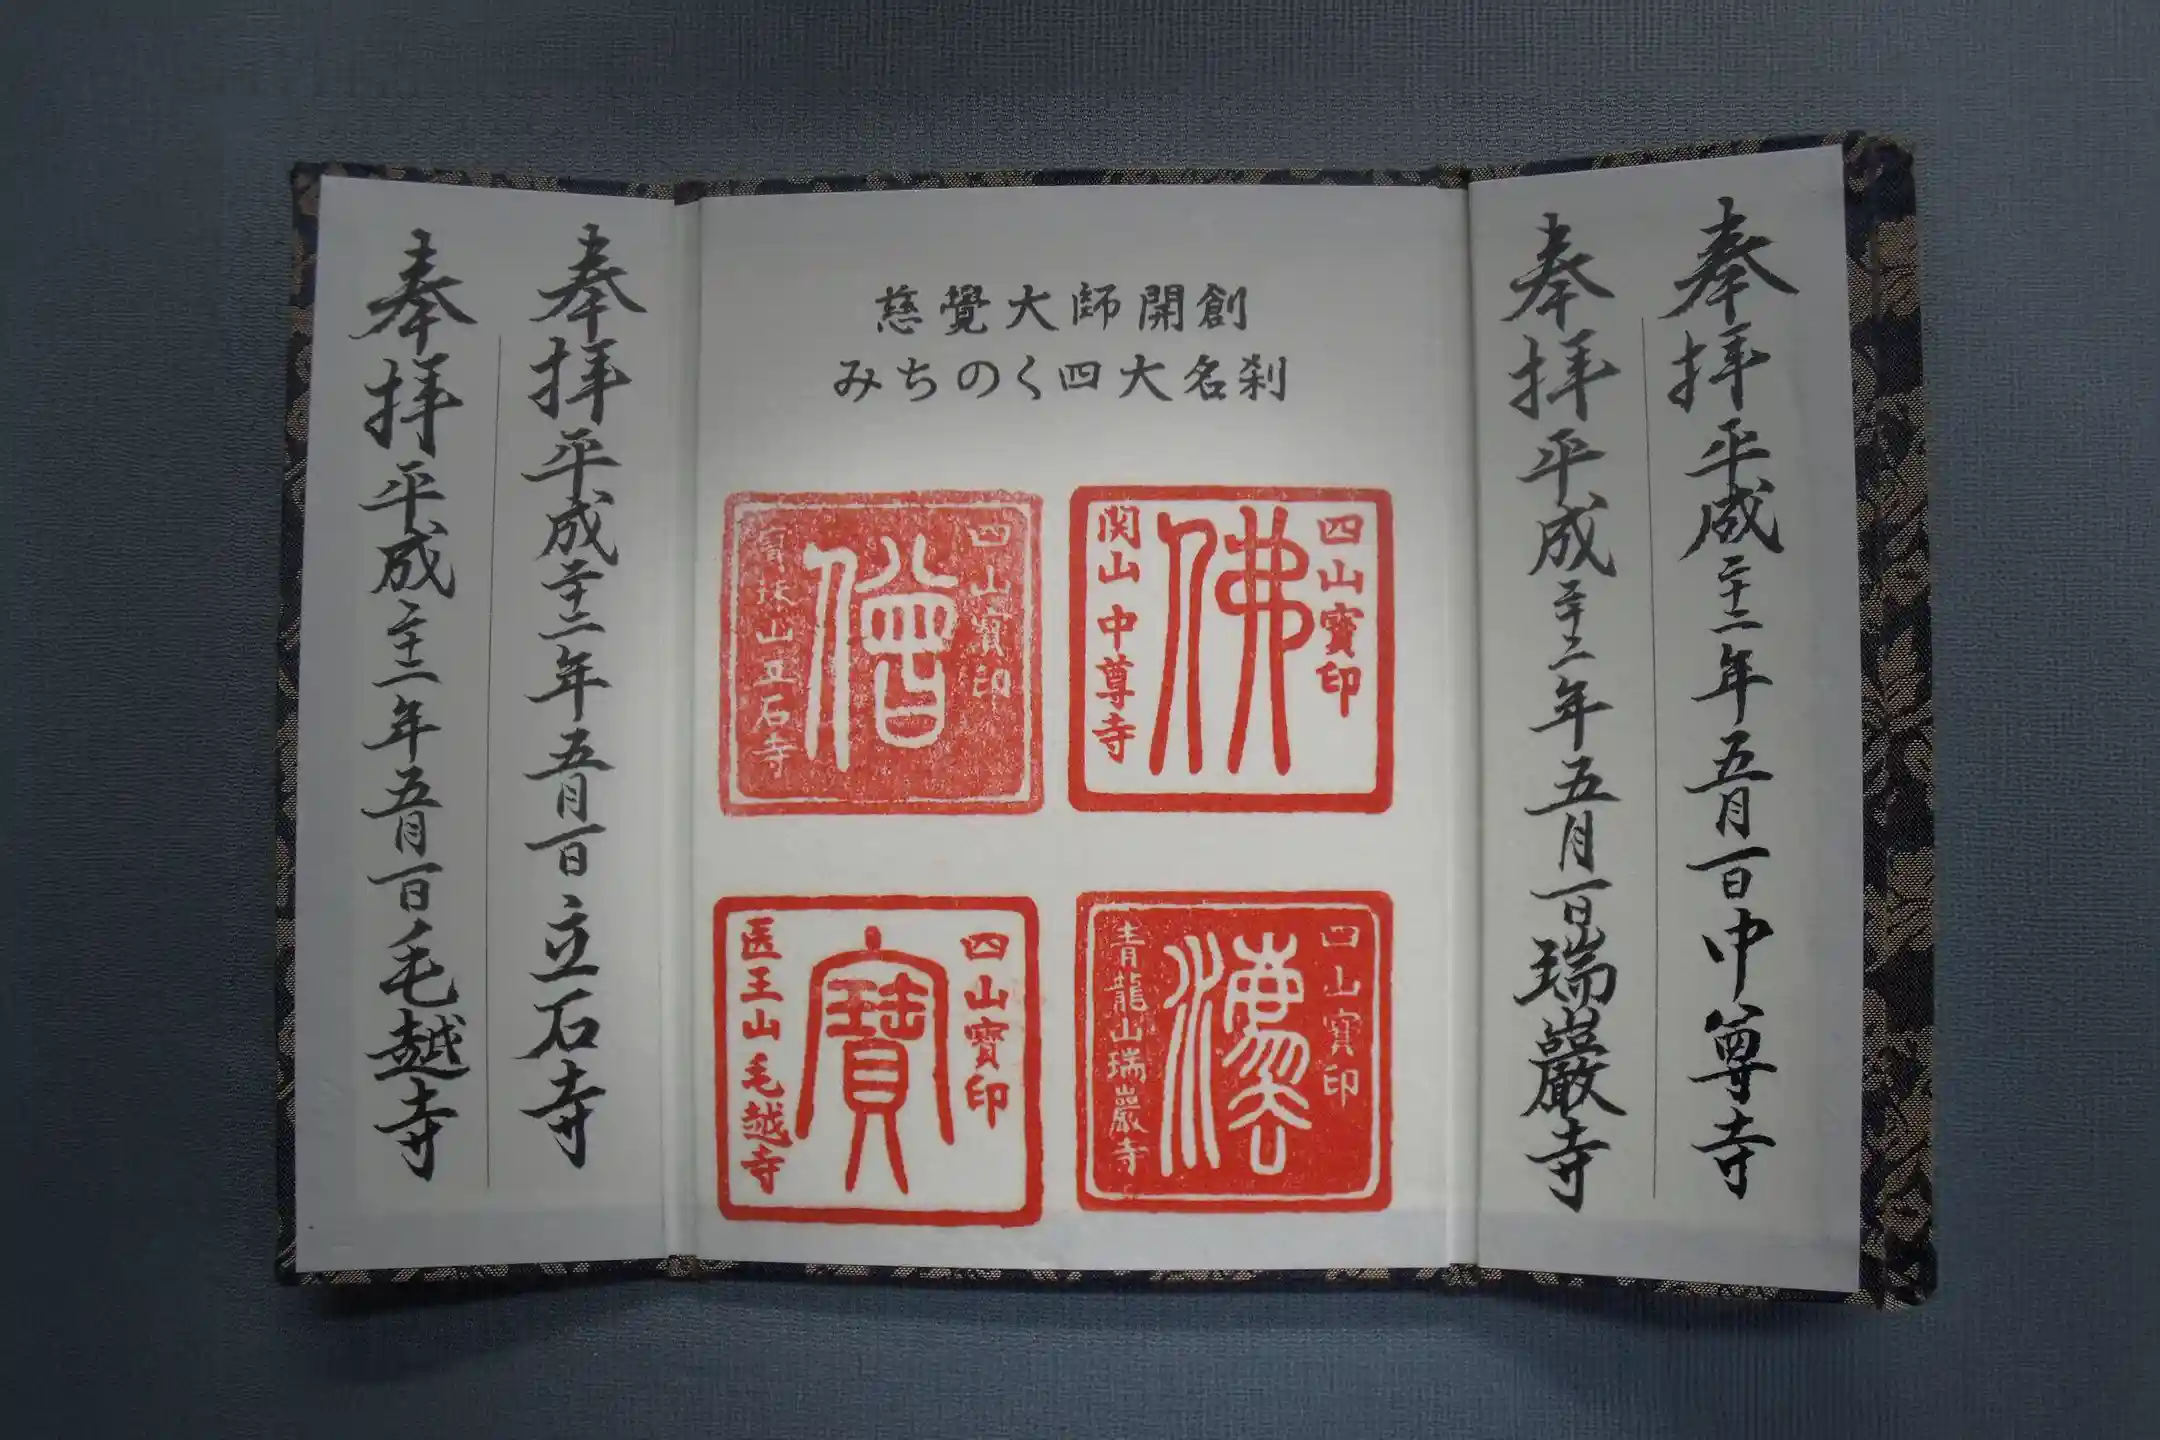 奉拝平成二十二年五月一日中尊寺
奉拝平成二十二年五月一日瑞巌寺
慈覺大師開創
みちのく四大名刹
四山寳印
佛
関山中尊寺
四山寳印
僧
寳珠山立石寺
四山寳印
灋
青龍山瑞巖寺
四山寳印
寶
医王山毛越寺
奉拝平成二十二年五月一日立石寺
奉拝平成二十二年五月一日毛越寺